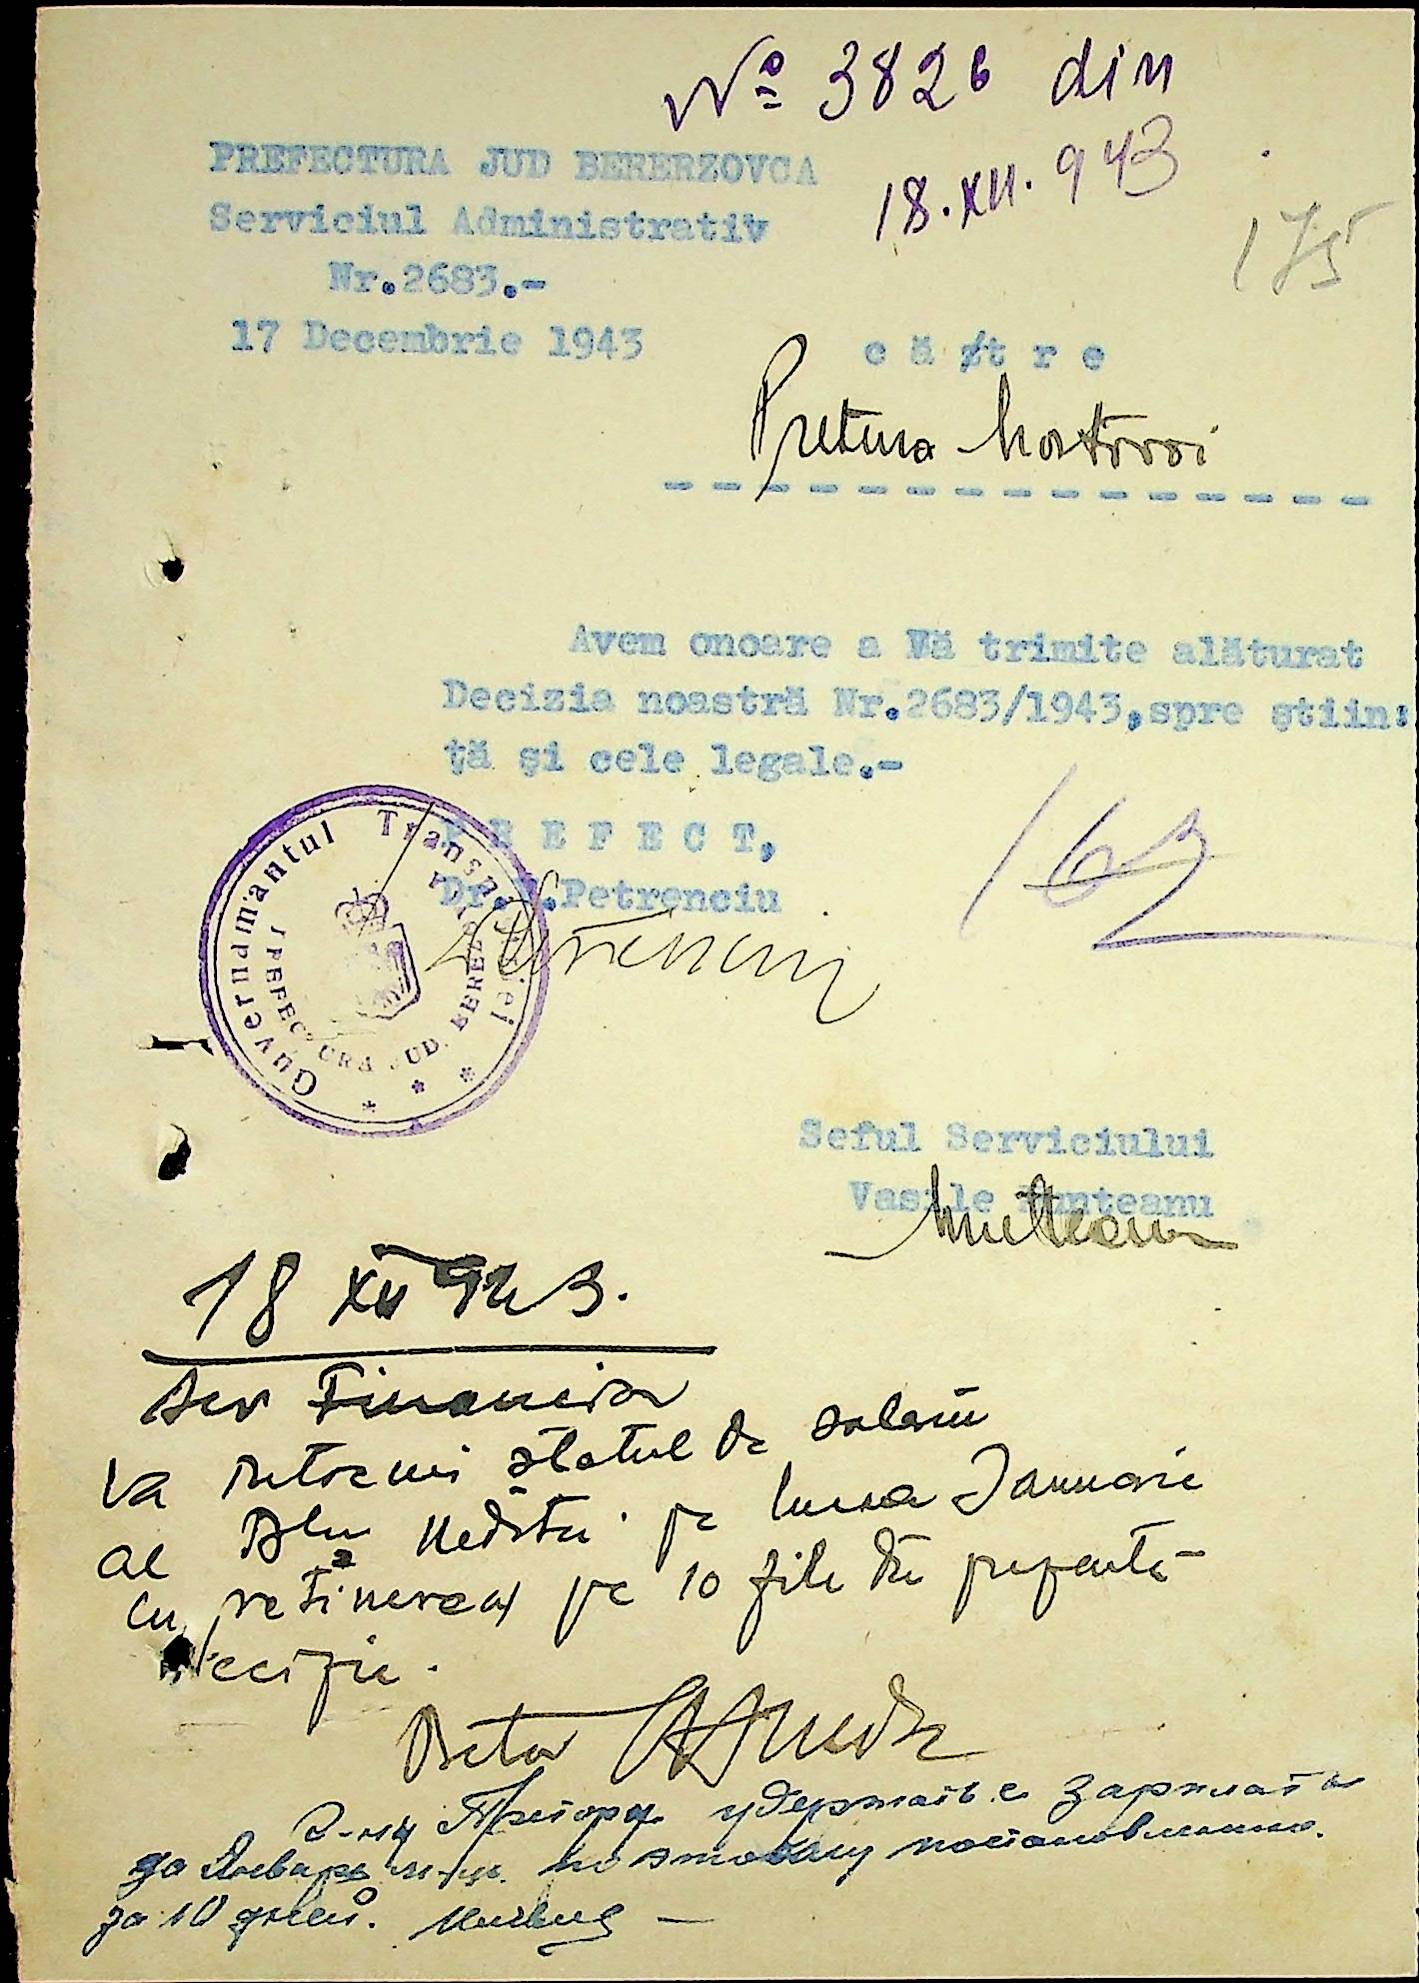 Nº 3826 din
18.XII.943
175
PREFECTURA JUD BERERZOVCA
Serviciul Administrativ
Nr.2683.-
17 Decembrie 1943
c ă t r e
Pretura Mostovoi
Avem onoare a Vă trimite alăturat
Decizia noastră Nr.2683/1943,spre ştiin:
ţă şi cele legale.-
P R E F E C T,
Petrenciu
Guvernămantul Transnistriei
PREFECTURA JUD. BEREZOVCA
Seful Serviciului
Vasile Munteanu
18 XII 943.
Serv Financiar
Va intocmi statul de salarii
al pe luna Januarie
cu retinerea pe 10 zile din prezenta
decizie.
Pretor
Претору удержать с зарплаты
за Январь м-ц. по этому постановлению.
за 10 дней.